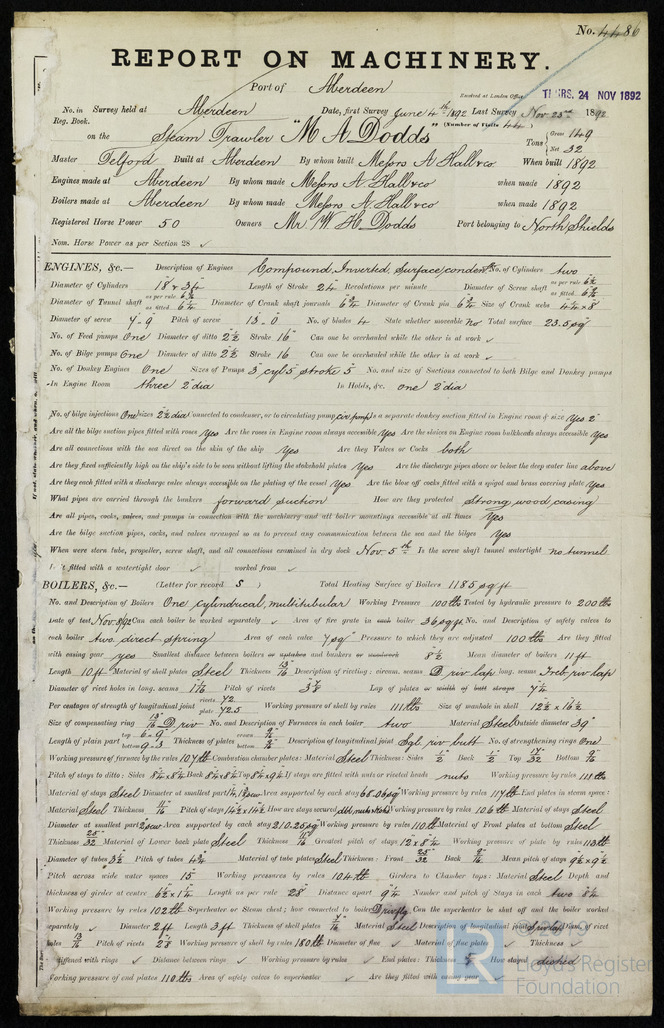 No. 4486
REPORT ON MACHINERY.
Port of Aberdeen
Received at London Office THURS. 24 NOV 1892
No. in Survey held at Aberdeen Date, first Survey June 4th 1892 Last Survey Nov 23rd 1892
Reg. Book. (Number of Visits 44)
on the Steam Trawler "M A Dodds" Tons Gross 149 Net 32
Master Telford Built at Aberdeen By whom built Messrs A Hall & co When built 1892
Engines made at Aberdeen By whom made Messrs A Hall & co when made 1892
Boilers made at Aberdeen By whom made Messrs A Hall & co when made 1892
Registered Horse Power 50 Owners Mr W H Dodds Port belonging to North Shields
Nom. Horse Power as per Section 28 ✓
ENGINES, &c.— Description of Engines Compound, Inverted, Surface condensg No. of Cylinders two
Diameter of Cylinders 18 & 34 Length of Stroke 24 Revolutions per minute Diameter of Screw shaft as per rule 6½ as fitted
Diameter of Tunnel shaft as per rule as fitted 6¼ Diameter of Crank shaft journals 6¾ Diameter of Crank pin 6¾ Size of Crank webs 4¼ x 8
Diameter of screw 7-9 Pitch of screw 13-0 No. of blades 4 State whether moveable no Total surface 23.5 sq
No. of Feed pumps One Diameter of ditto 2½ Stroke 16 Can one be overhauled while the other is at work ✓
No. of Bilge pumps One Diameter of ditto 2½ Stroke 16 Can one be overhauled while the other is at work ✓
No. of Donkey Engines One Sizes of Pumps 3 cyl 5 stroke 5 No. and size of Suctions connected to both Bilge and Donkey pumps
In Engine Room three 2" dia In Holds, &c. one 2" dia
No. of bilge injections One sizes 2½ dia Connected to condenser, or to circulating pump cir pump Is a separate donkey suction fitted in Engine room & size Yes 2"
Are all the bilge suction pipes fitted with roses Yes Are the roses in Engine room always accessible Yes Are the sluices on Engine room bulkheads always accessible Yes
Are all connections with the sea direct on the skin of the ship Yes Are they Valves or Cocks both
Are they fixed sufficiently high on the ship's side to be seen without lifting the stokehold plates Yes Are the discharge pipes above or below the deep water line above
Are they each fitted with a discharge valve always accessible on the plating of the vessel Yes Are the blow off cocks fitted with a spigot and brass covering plate Yes
What pipes are carried through the bunkers forward suction How are they protected Strong wood casing
Are all pipes, cocks, valves, and pumps in connection with the machinery and all boiler mountings accessible at all times Yes
Are the bilge suction pipes, cocks, and valves arranged so as to prevent any communication between the sea and the bilges Yes
When were stern tube, propeller, screw shaft, and all connections examined in dry dock Nov. 5th Is the screw shaft tunnel watertight no tunnel
Is it fitted with a watertight door ✓ worked from ✓
BOILERS, &c.— (Letter for record S) Total Heating Surface of Boilers 1185 sq ft
No. and Description of Boilers One cylindrical, multitubular Working Pressure 100 lbs Tested by hydraulic pressure to 200 lbs
Date of test Nov 8/92 Can each boiler be worked separately ✓ Area of fire grate in each boiler 36 sq ft No. and Description of safety valves to
each boiler two direct spring Area of each valve 7 sq" Pressure to which they are adjusted 100 lbs Are they fitted
with easing gear yes Smallest distance between boilers or uptakes and bunkers or woodwork 8½ Mean diameter of boilers 11 ft
Length 10 ft Material of shell plates Steel Thickness 13/16 Description of riveting: circum. seams D. riv lap long. seams Treb. riv lap
Diameter of rivet holes in long. seams 1 1/16 Pitch of rivets 3 7/8 Lap of plates or width of butt straps 7¼
Per centages of strength of longitudinal joint rivets 72 plate 72.5 Working pressure of shell by rules 111 lbs Size of manhole in shell 12½ x 16½
Size of compensating ring 13/16 D. riv No. and Description of Furnaces in each boiler two Material Steel Outside diameter 39"
Length of plain part top 6-9 bottom 9-3 Thickness of plates crown bottom 9/16 Description of longitudinal joint Sgl. riv butt No. of strengthening rings One
Working pressure of furnace by the rules 107 lbs Combustion chamber plates: Material Steel Thickness: Sides ½ Back ½ Top 17/32 Bottom 9/16
Pitch of stays to ditto: Sides 8¼ x 8¼ Back 8¼ x 8¼ Top 8¼ x 9¼ If stays are fitted with nuts or riveted heads nuts Working pressure by rules 111 lbs
Material of stays Steel Diameter at smallest part Area supported by each stay 68.06 sq" Working pressure by rules 117 lbs End plates in steam space:
Material Steel Thickness 11/16 Pitch of stays 14½ x 14½ How are stays secured dbl, nuts & Working pressure by rules 106 lbs Material of stays Steel
Diameter at smallest part Area supported by each stay 210.25 sq" Working pressure by rules 110 lbs Material of Front plates at bottom Steel
Thickness 25/32 Material of Lower back plate Steel Thickness Greatest pitch of stays 12 x 8¼ Working pressure of plate by rules 113 lbs
Diameter of tubes 3½ Pitch of tubes 4¾ Material of tube plates Steel Thickness: Front 25/32 Back Mean pitch of stays 9½ x 9½
Pitch across wide water spaces 15 Working pressures by rules 104 lbs Girders to Chamber tops: Material Steel Depth and
thickness of girder at centre 6½ x 1¼ Length as per rule 28 Distance apart 9¼ Number and pitch of Stays in each two 8¼
Working pressure by rules 102 lbs Superheater or Steam chest; how connected to boiler Directly Can the superheater be shut off and the boiler worked
separately ✓ Diameter 2 ft Length 3 ft Thickness of shell plates 7/16 Material Steel Description of longitudinal joint S riv lap Diam. of rivet
holes 13/16 Pitch of rivets 2 Working pressure of shell by rules 180 lbs Diameter of flue ✓ Material of flue plates ✓ Thickness ✓
Stiffened with rings ✓ Distance between rings ✓ Working pressure by rules ✓ End plates: Thickness How stayed dished
Working pressure of end plates 110 lbs Area of safety valves to superheater ✓ Are they fitted with easing gear ✓
LR
Lloyd's Register
Foundation